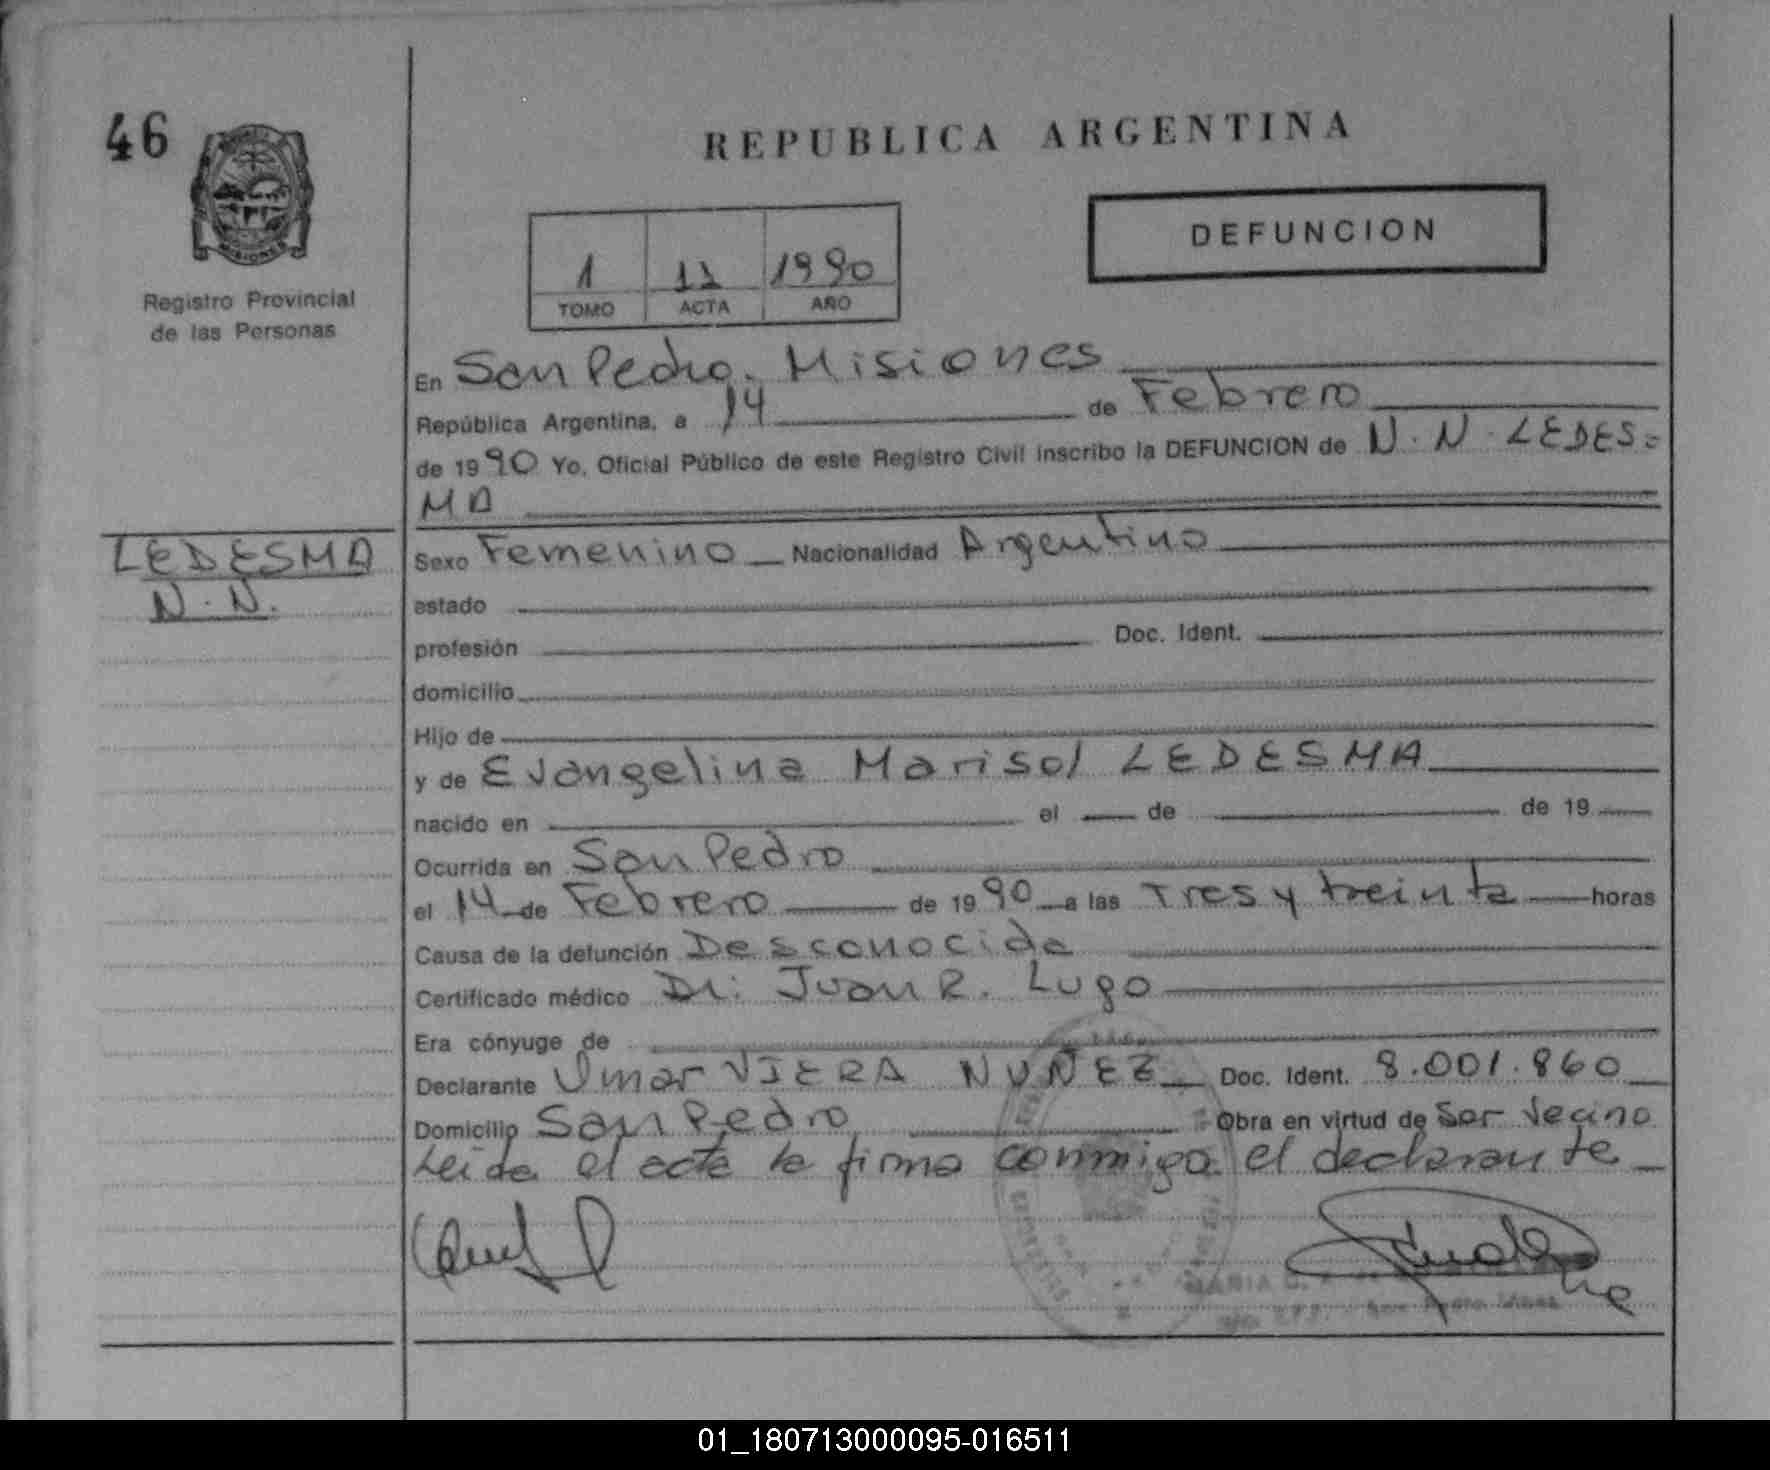 46
REPUBLICA ARGENTINA
DEFUNCION
1 11 1990
TOMO ACTA AÑO
Registro Provincial
de las Personas
En San Pedro. Misiones
República Argentina, a 14 de Febrero
de 1990 Yo, Oficial Público de este Registro Civil inscribo la DEFUNCION de N. N. LEDES=
MA
LEDESMA
N. N.
Sexo Femenino Nacionalidad Argentino
estado
profesión Doc. Ident.
domicilio
Hijo de
y de Evangelina Marisol LEDESMA
nacido en el de de 19
Ocurrida en San Pedro
el 14 de Febrero de 1990 a las Tres y treinta horas
Causa de la defunción Desconocida
Certificado médico Dr: Juan R. Lugo
Era cónyuge de
Declarante Omar VIERA NUÑEZ Doc. Ident. 8.001.860
Domicilio San Pedro Obra en virtud de Ser Vecino
Leída el acta la firma conmigo el declarante
MARIA
01_180713000095-016511